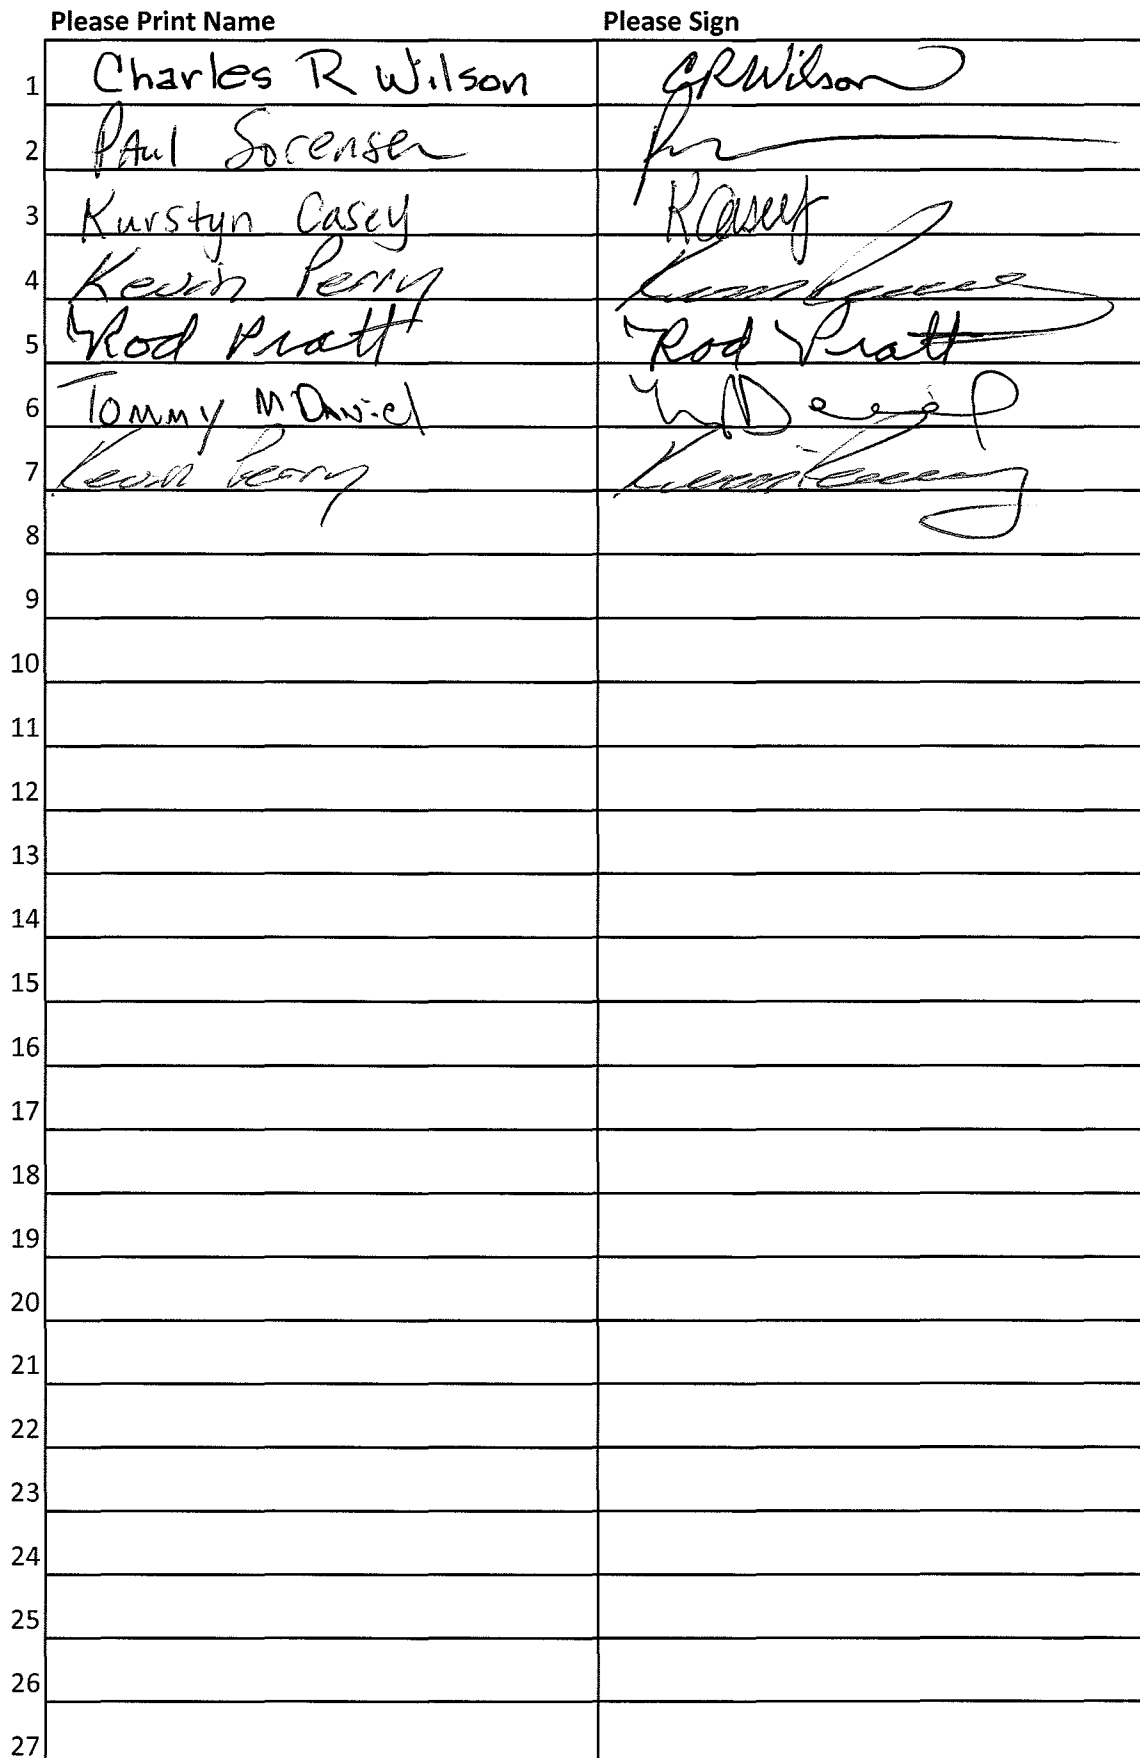 Please Print Name Please Sign
1 Charles R Wilson CRWilson
2 PAul Sorensen
3 Kurstyn Casey KCasey
4 Kevin Perry
5 Rod Pratt Rod Pratt
6 Tommy McDaniel
7 Kevin Perry
8
9
10
11
12
13
14
15
16
17
18
19
20
21
22
23
24
25
26
27